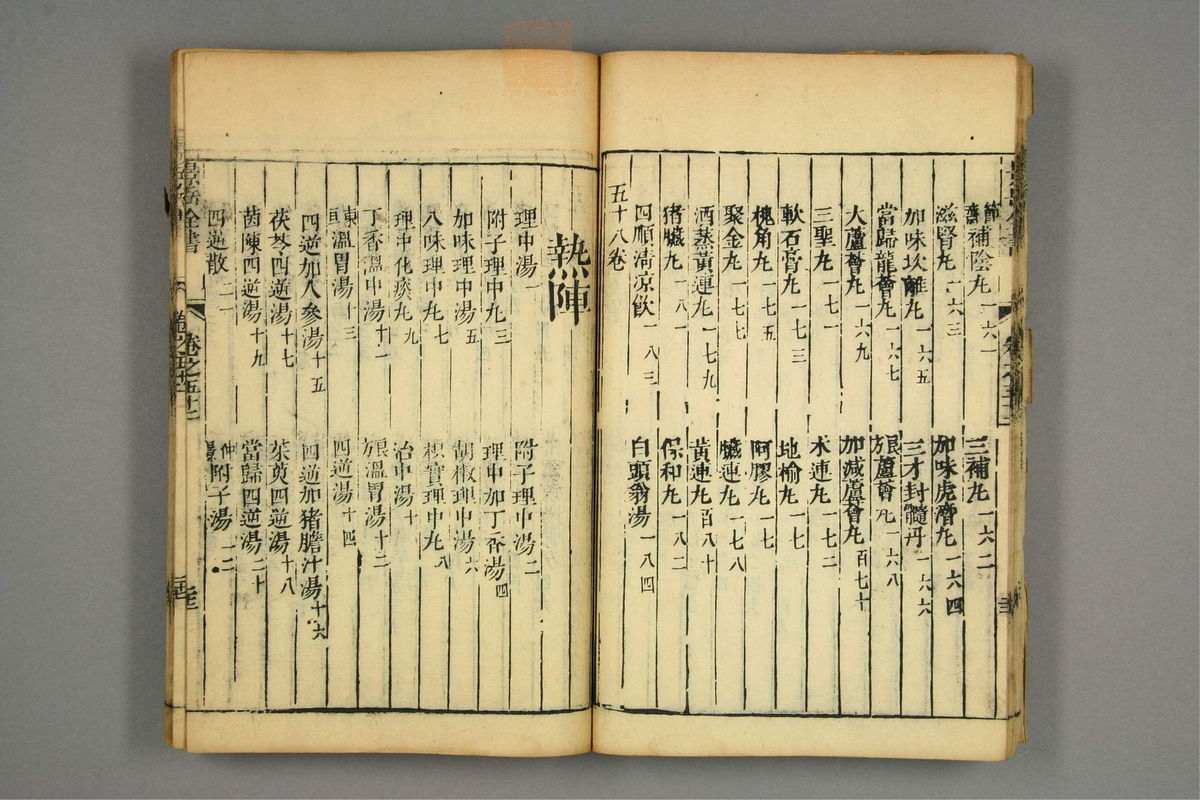 節齋補陰丸一六一　三補丸一六二
滋腎丸一六三　加味虎潛丸一六四
加味坎離丸一六五　三才封髓丹一六六
當歸龍薈丸一六七　蘆薈丸一六八
大蘆薈丸一六九　加減蘆薈丸百七十
三聖丸一七一　水連丸一七二
軟石膏丸一七三　地榆丸一七
槐角丸一七五　阿膠丸一七
聚金丸一七七　臟連丸一七八
酒蒸黃連丸一七九　黃連丸百八十
猪臟丸一八一　保和丸一八二
四順清涼飲一八三　白頭翁湯一八四
五十八卷
熱陣
理中湯一　附子理中湯二
附子理中丸三　理中加丁香湯四
加味理中湯五　胡椒理中湯六
八味理中丸七　枳實理中丸八
理中化痰丸九　治中湯十
丁香溫中湯十一　溫胃湯十二
東垣溫胃湯十三　四逆湯十四
四逆加人參湯十五　四逆加猪膽汁湯十六
茯苓四逆湯十七　茱萸四逆湯十八
茵陳四逆湯十九　當歸四逆湯二十
四逆散二一　仲景附子湯二二
景岳全書　卷之五十二